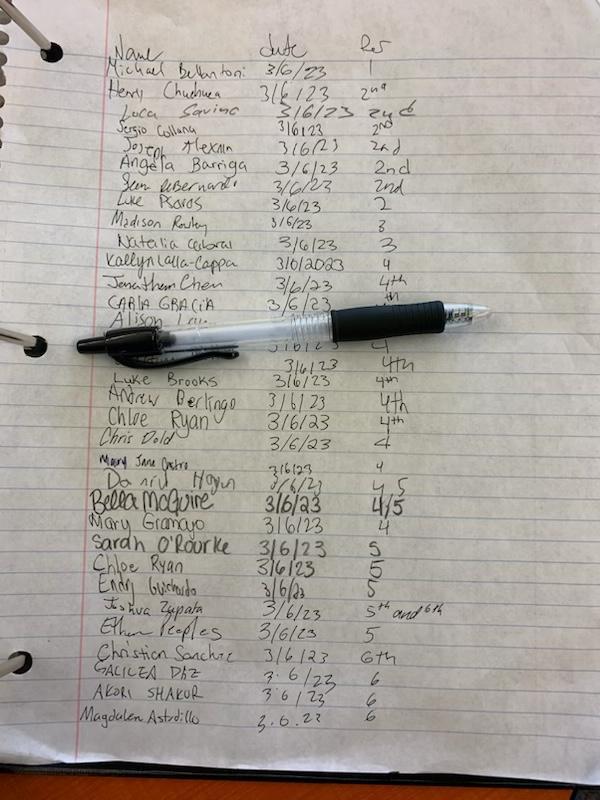 Name date Per
Michael Bellantoni 3/6/23 1
Henry Chuchuca 3/6/23 2nd
Luca Savino 3/6/23 2nd
Sergio Collana 3/6/23 2nd
Joseph 3/6/23 2nd
Angela Barriga 3/6/23 2nd
3/6/23 2nd
Luke Psaros 3/6/23 2
Madison 3/6/23 3
Natalia 3/6/23 3
Kaelyn Lalla-Cappa 3/6/2023 4
Jonathan Chen 3/6/23 4th
CARLA GRACIA 3/6/23
Alison
3/6/23 4th
Luke Brooks 3/6/23 4th
Andrew Berlingo 3/6/23 4th
Chloe Ryan 3/6/23 4th
Chris Dold 3/6/23 4
Mary Jane Castro 3/6/23 4
4 5
Bella McGuire 3/6/23 4/5
Mary Gramayo 3/6/23 4
Sarah O'Rourke 3/6/23 5
Chloe Ryan 3/6/23 5
Endry Guichardo 3/6/23 5
Joshua Zapata 3/6/23 5th and 6th
Ethan Peeples 3/6/23 5
Christian 3/6/23 6th
GALILEA 3·6/23 6
AKORI SHAKUR 3·6/23 6
Magdalen Astudillo 3.6.23 6